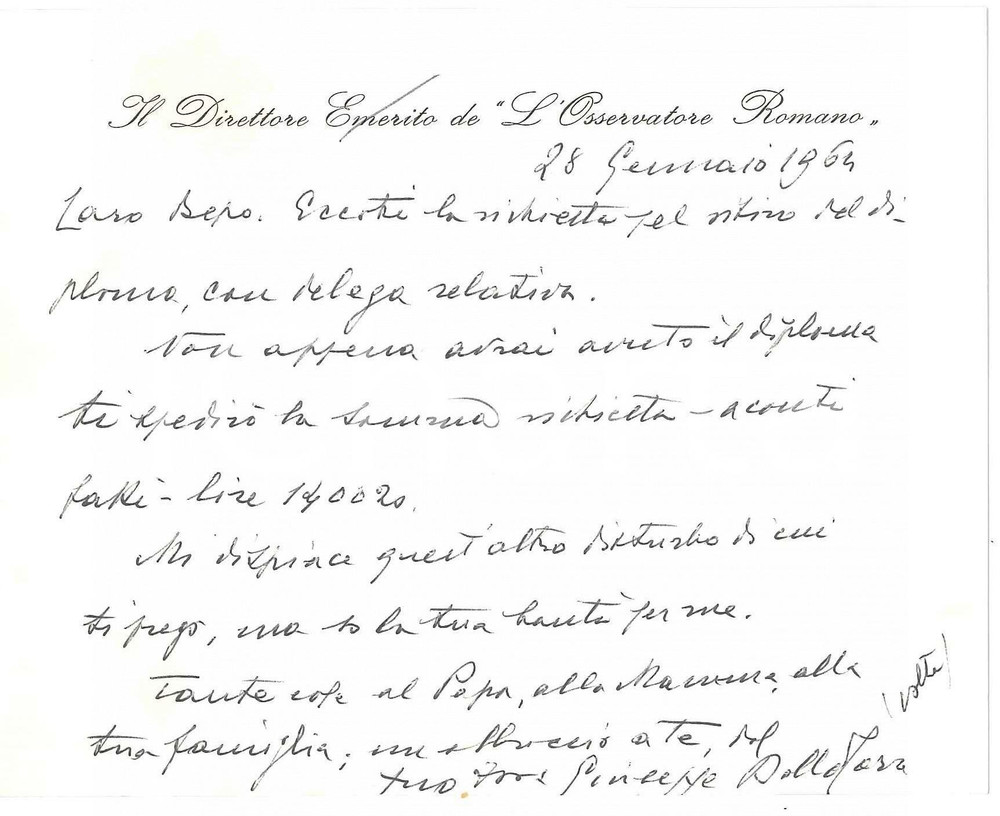 Il Direttore Emerito de "L'Osservatore Romano"
28 Gennaio 1964
Caro Bepo. Eccoti la richiesta pel ritiro del di-
ploma, con delega relativa.
Non appena avrai avuto il diploma
ti spedirò la somma richiesta - a conti
fatti - lire
Mi dispiace quest'altro disturbo di cui
ti prego, ma so la tua bontà per me.
Tante cose al Papa, alla Mamma, alla
tua famiglia; un abbraccio a te, dal
tuo Giuseppe Dalla Torre
(volta)